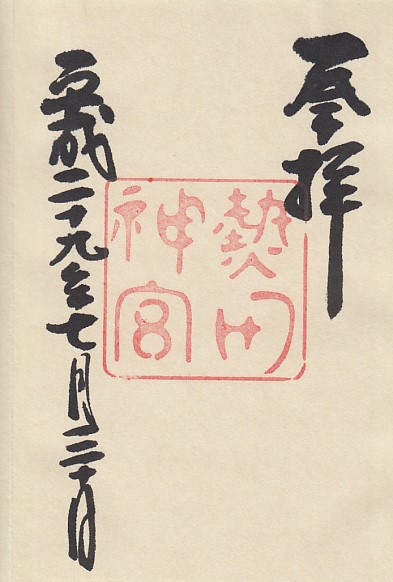 奉拝
熱田
神宮
平成二十九年七月三十日